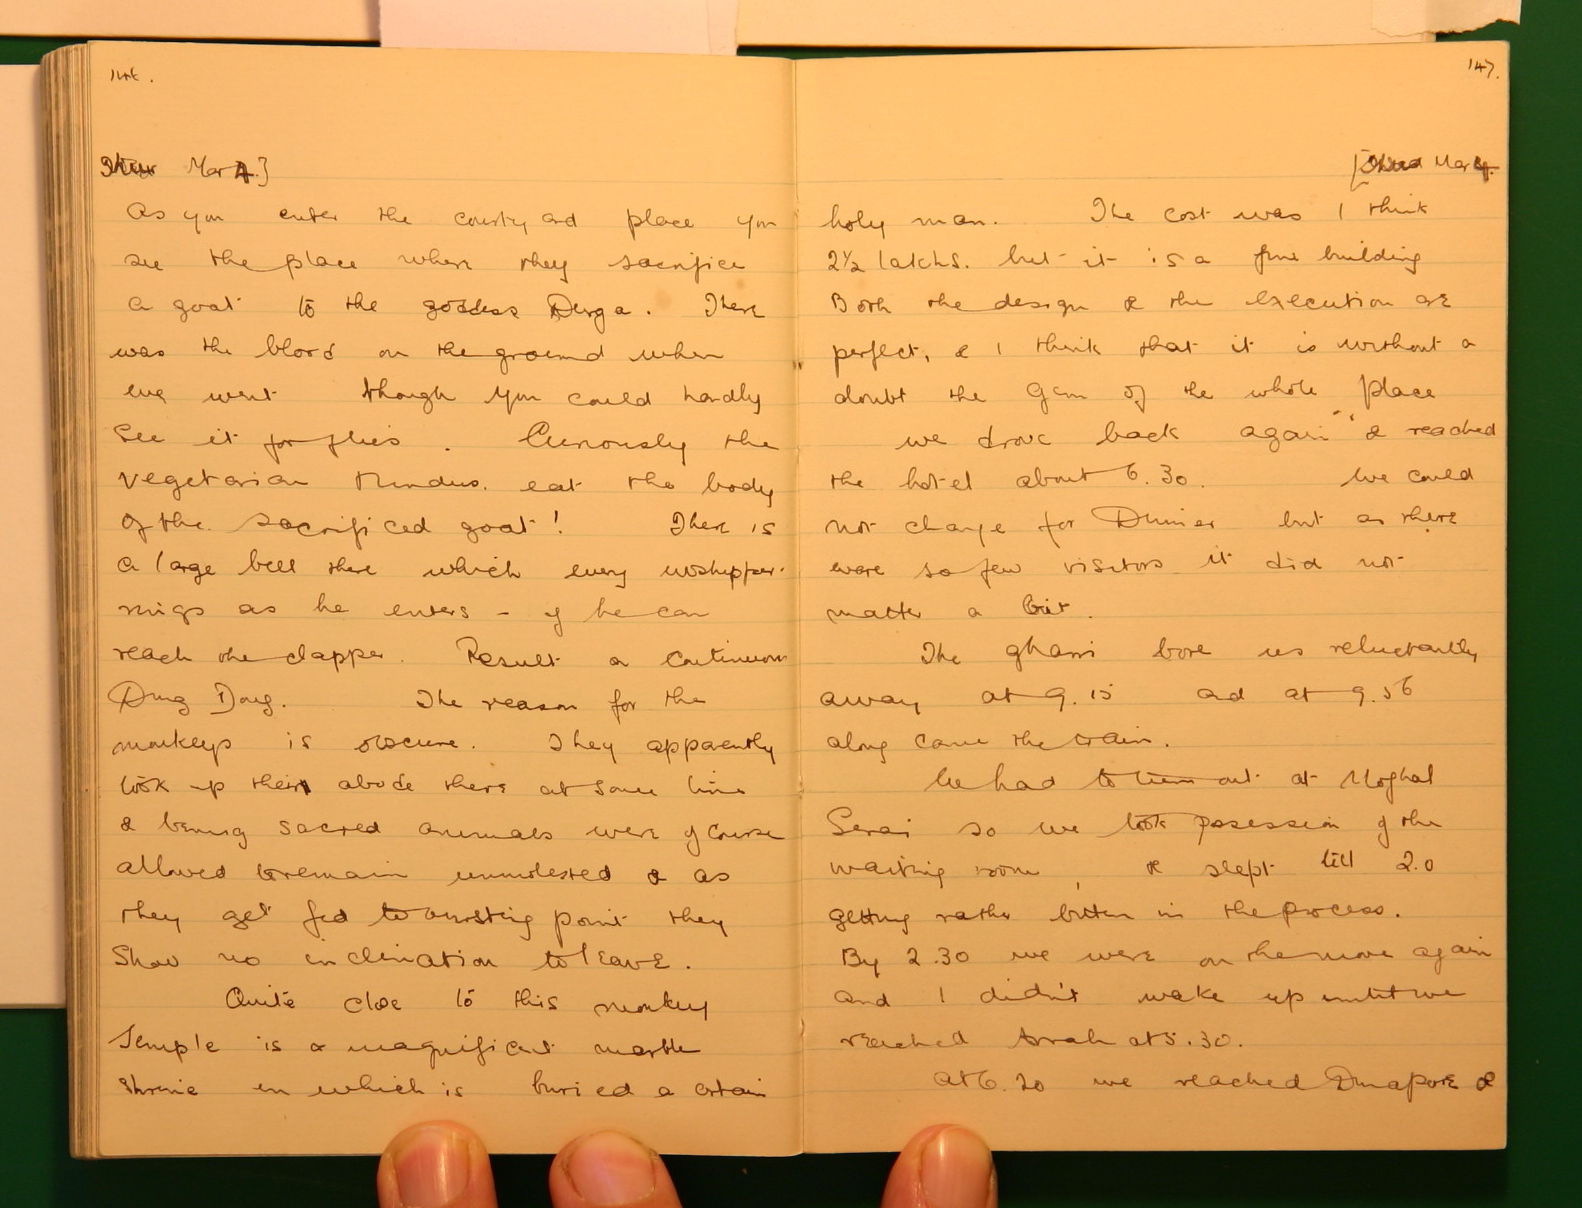 146.
Mar 4.]
As you enter the courtyard place you
see the place where they sacrifice
a goat to the goddess Durga. There
was the blood on the ground when
we went though you could hardly
see it for flies. Curiously the
vegetarian Hindus. eat the body
of the sacrificed goat! There is
a large bell there which every worshipper
rings as he enters - if he can
reach the clapper. Result a continuous
Ding Dong. The reason for the
monkeys is obscure. They apparently
took up their abode there at some time
& being sacred animals were of course
allowed to remain unmolested & as
they get fed to bursting point they
show no inclination to leave.
Quite close to this monkey
Temple is a magnificent marble
shrine in which is buried a certain
147.
Mar 4.
holy man. The cost was I think
2½ lakhs. but it is a fine building
Both the design & the execution are
perfect, & I think that it is without a
doubt the gem of the whole place
we drove back again & reached
the hotel about 6.30. We could
not change for Dinner but as there
were so few visitors it did not
matter a bit.
The gharri bore us reluctantly
away at 9.15 and at 9.56
along came the train.
We had to turn out at Moghal
Serai so we took posession of the
waiting room, & slept till 2.0
getting rather bitten in the process.
By 2.30 we were on the move again
and I didn't wake up until we
reached Arrah at 5.30.
At 6.20 we reached Dinapore &